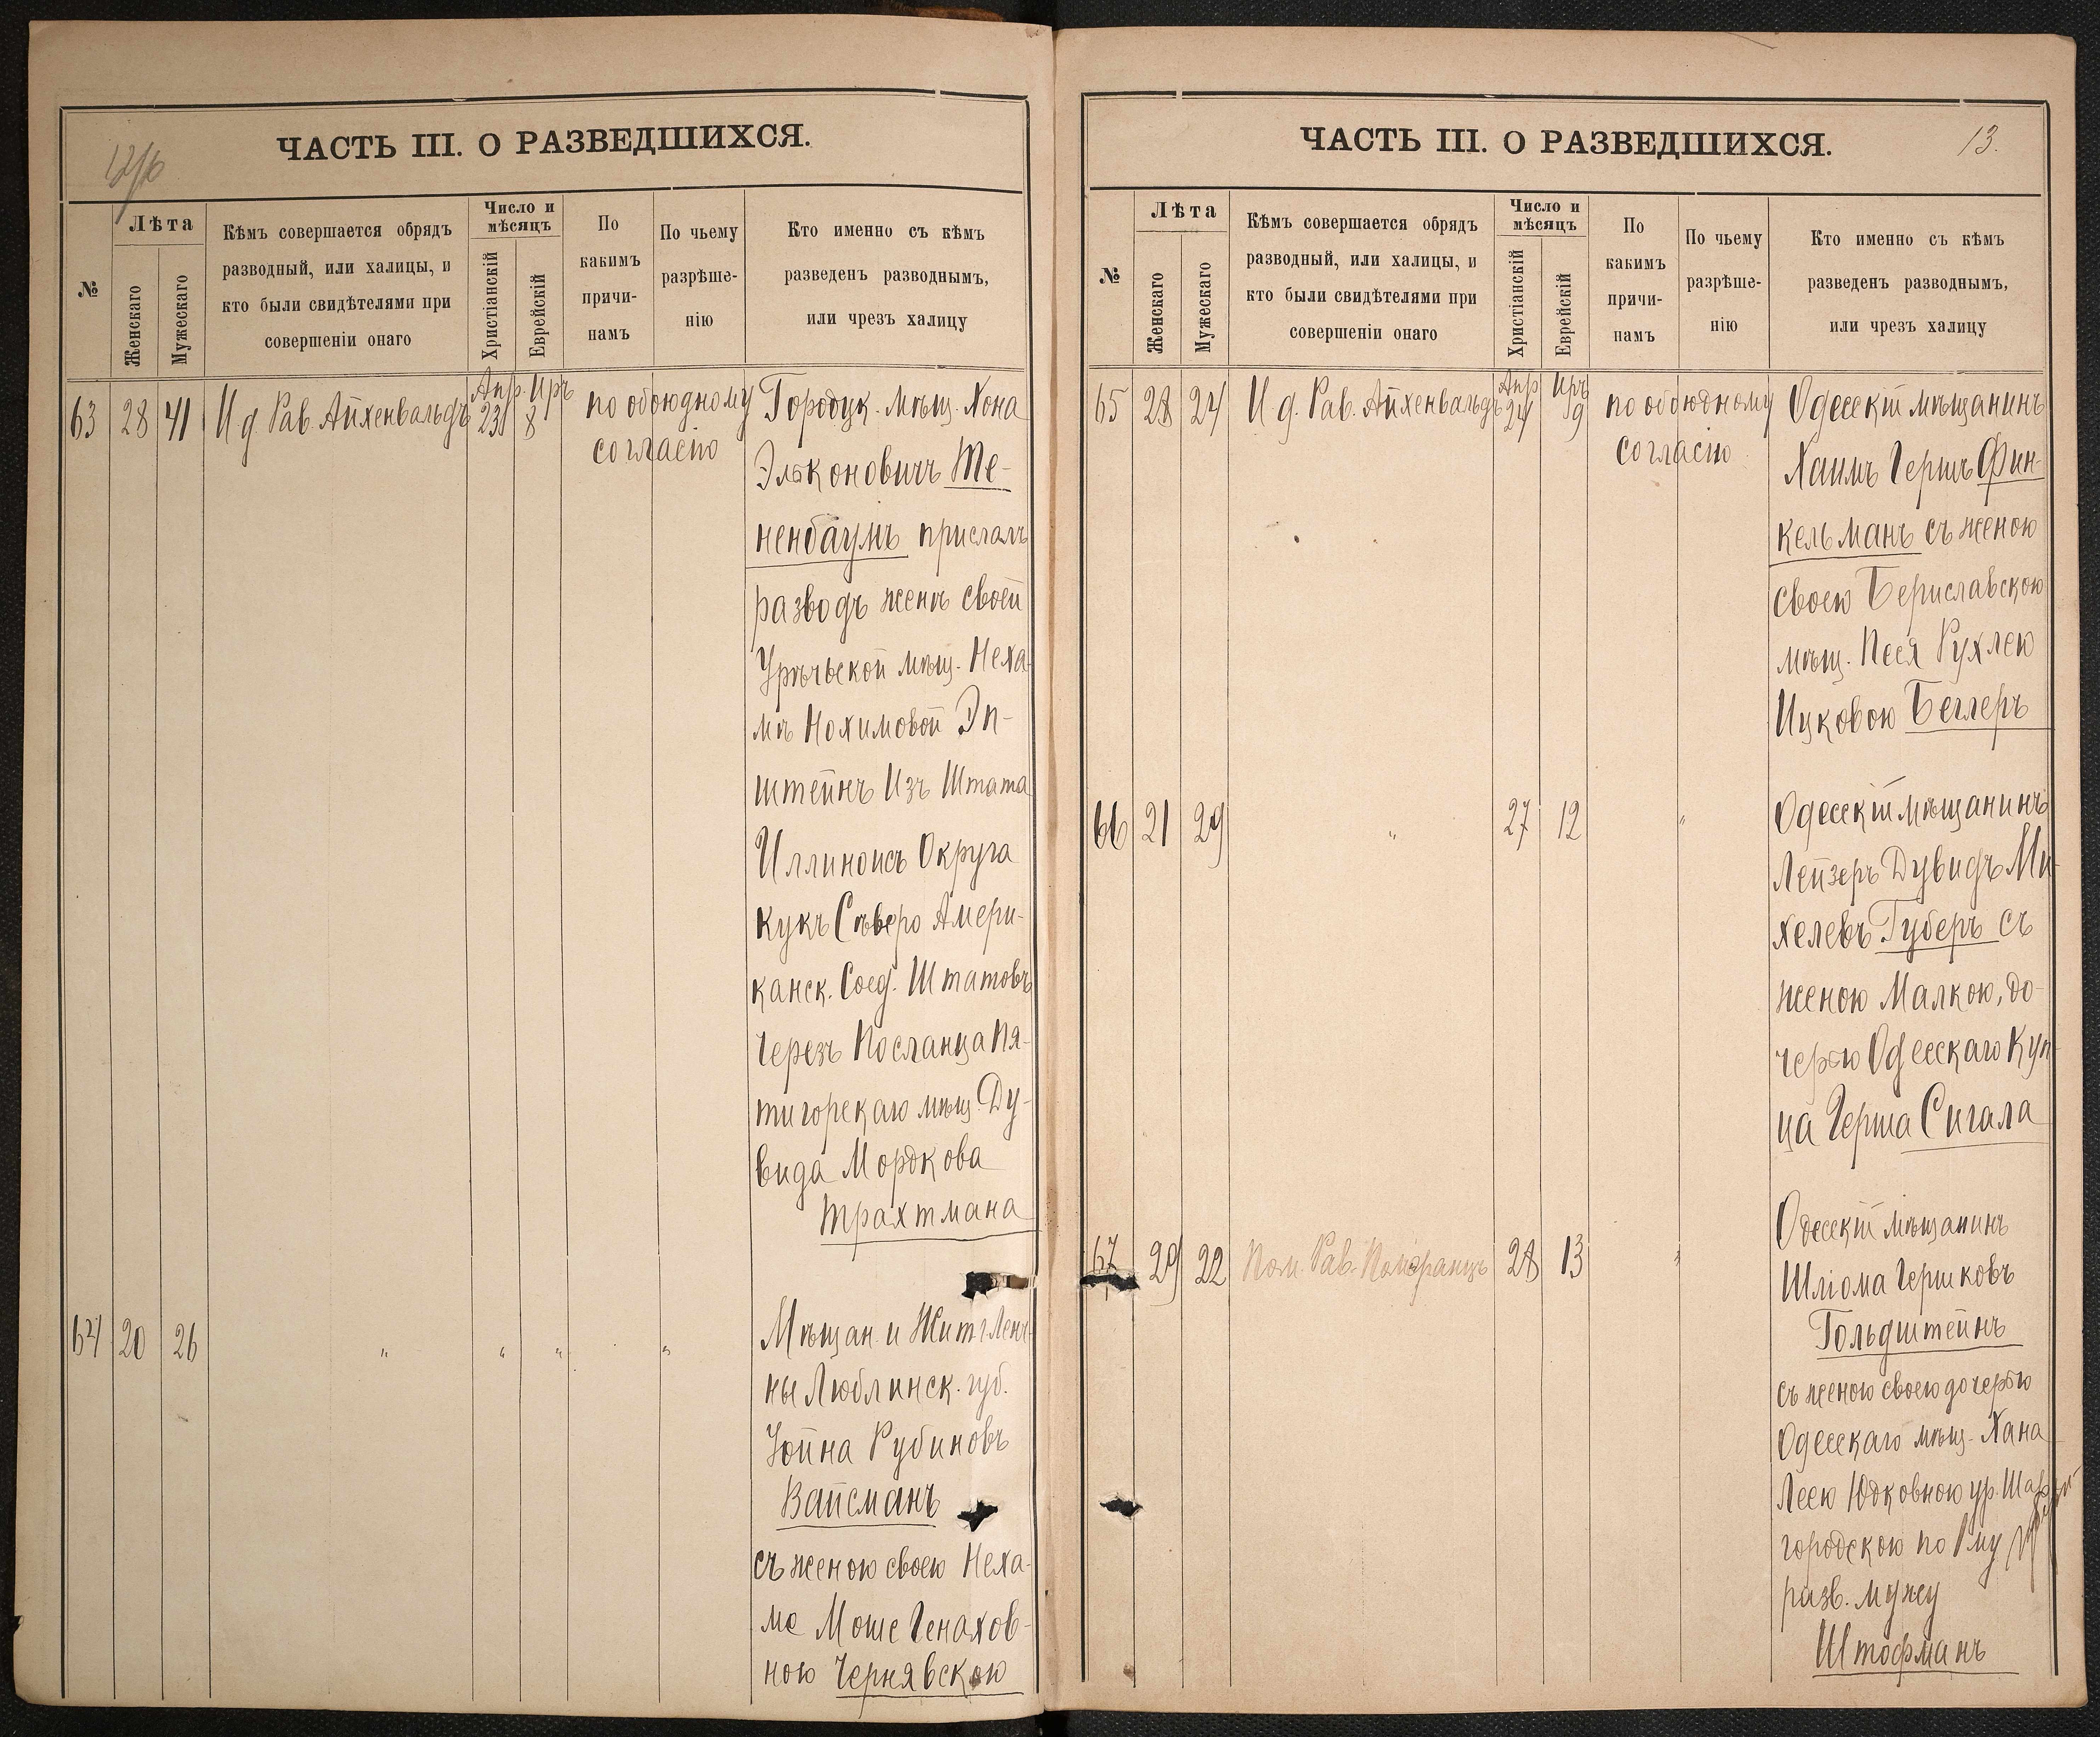 ЧАСТЬ III. О РАЗВЕДШИХСЯ.
№
Лѣта
Женскаго
Мужескаго
Кѣмъ совершается обрядъ
разводный, или халицы, и
кто были свидѣтелями при
совершеніи онаго
Число и
мѣсяцъ
Христіанскій
Еврейскій
По
какимъ
причи-
намъ
По чьему
разрѣше-
нію
Кто именно съ кѣмъ
разведенъ разводнымъ,
или чрезъ халицу
63 28 41 И д. Рав. Айхенвальдъ Апр. 23 Иръ 8 по обоюдному
согласію
Городук. мѣщ. Хона
Эльконовичъ Те-
ненбаумъ прислалъ
разводъ женѣ своей
Урѣчьской мѣщ. Неха-
мѣ Нохимовой Эп-
штейнъ Изъ Штата
Иллиноисъ Округа
Кукъ Сѣверо Амери-
канск. Соед. Штатовъ
Через Посланца Пя-
тигорскаго мѣщ. Ду-
вида Мордкова
Трахтмана
64 20 26 " " " "
Мѣщан. и Жит. г. Ленч-
ны Люблинск. губ.
Юйна Рубиновъ
Вайсманъ
съ женою своею Неха-
ма Моше Генахов-
ною Чернявскою
ЧАСТЬ III. О РАЗВЕДШИХСЯ.
13.
№
Лѣта
Женскаго
Мужескаго
Кѣмъ совершается обрядъ
разводный, или халицы, и
кто были свидѣтелями при
совершеніи онаго
Число и
мѣсяцъ
Христіанскій
Еврейскій
По
какимъ
причи-
намъ
По чьему
разрѣше-
нію
Кто именно съ кѣмъ
разведенъ разводнымъ,
или чрезъ халицу
65 28 24 И. д. Рав. Айхенвальдъ Апр 24 Иръ 9 по обоюдному
согласію
Одесскій мѣщанинъ
Хаимъ Гершъ Фин-
кельманъ съ женою
своею Бериславскою
мѣщ. Песя Рухлею
Ицковою Беглеръ
66 21 29 " 27 12 "
Одесскій мѣщанинъ
Лейзеръ Дувидъ Ми-
хелевъ Губеръ съ
женою Малкою, до-
черью Одесскаго Куп-
ца Герша Сигала
67 29 22 Пом. Рав. Померанцъ 28 13 "
Одесскій мѣщанинъ
Шліома Гершковъ
Гольдштейнъ
съ женою своею дочерью
Одесскаго мѣщ. Хана
Леею Юдковною ур. Шар-
городскою по
разв. мужу
Штофманъ